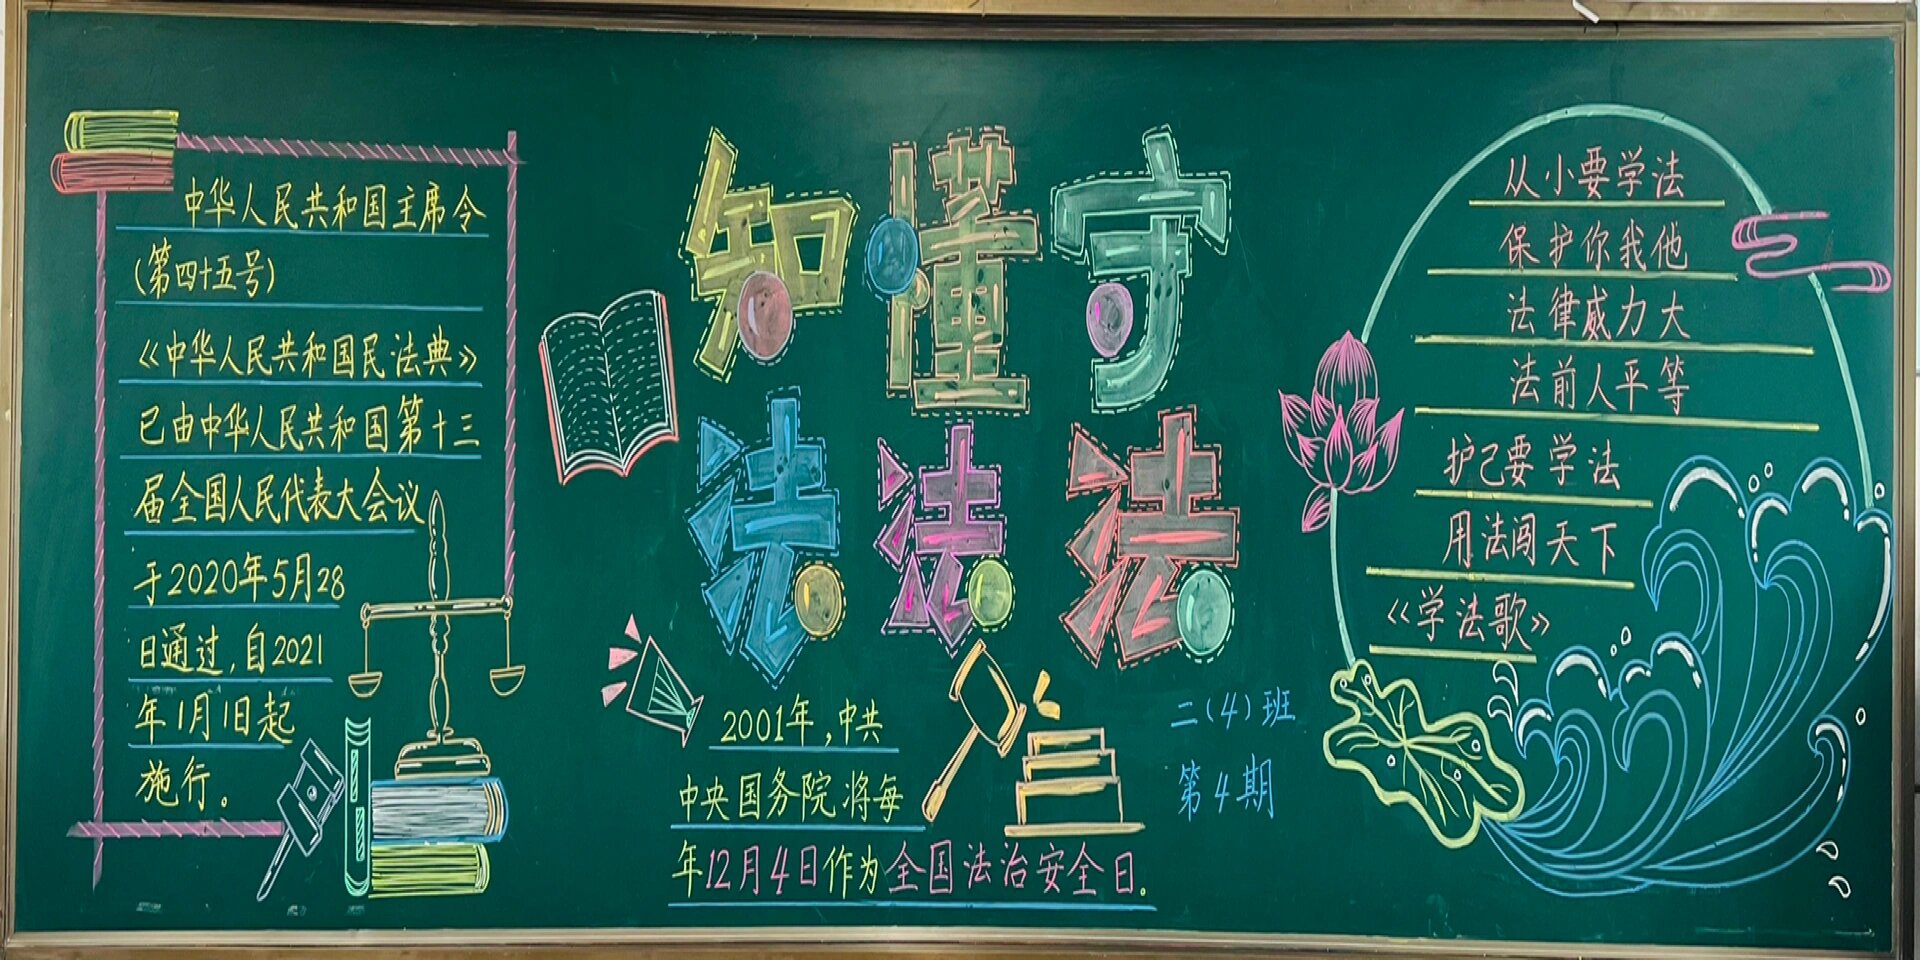 中华人民共和国主席令
(第四十五号)
《中华人民共和国民法典》
已由中华人民共和国第十三
届全国人民代表大会议
于2020年5月28
日通过,自2021
年1月1日起
施行。
知懂守
法法法
2001年,中共
中央国务院将每
年12月4日作为全国法治安全日。
二(4)班
第4期
从小要学法
保护你我他
法律威力大
法前人平等
护己要学法
用法闯天下
《学法歌》